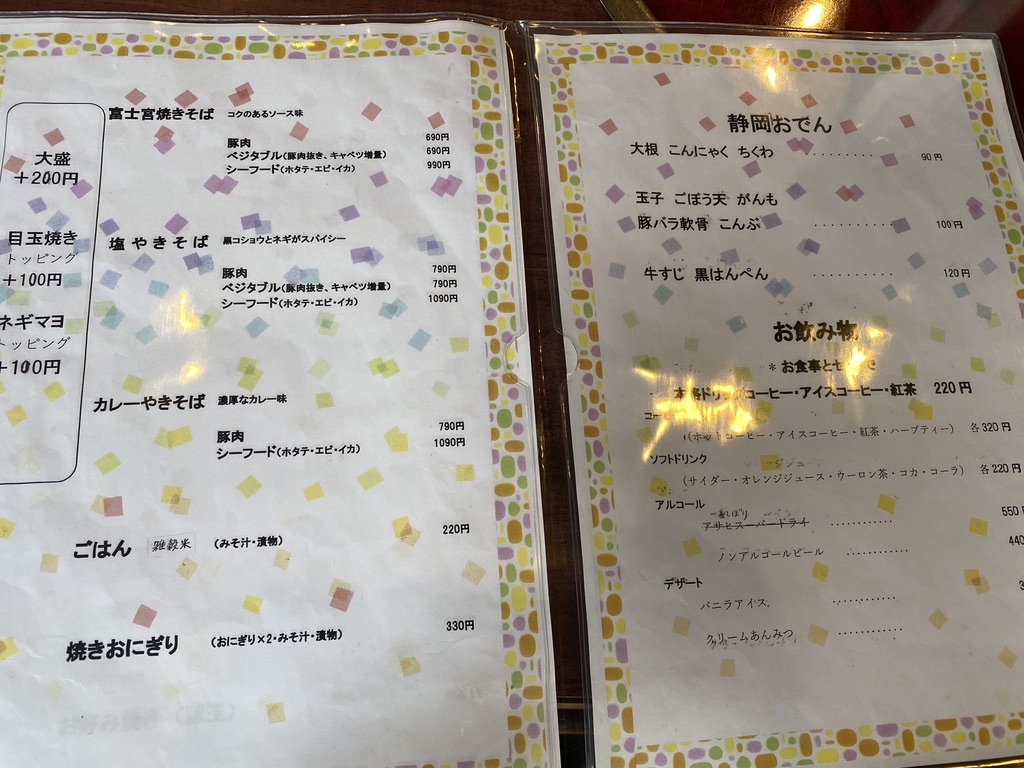 大盛
＋200円
目玉焼き
トッピング
＋100円
ネギマヨ
トッピング
＋100円
富士宮焼きそば コクのあるソース味
豚肉 690円
ベジタブル（豚肉抜き、キャベツ増量） 690円
シーフード（ホタテ・エビ・イカ） 990円
塩やきそば 黒コショウとネギがスパイシー
豚肉 790円
ベジタブル（豚肉抜き、キャベツ増量） 790円
シーフード（ホタテ・エビ・イカ） 1090円
カレーやきそば 濃厚なカレー味
豚肉 790円
シーフード（ホタテ・エビ・イカ） 1090円
ごはん 雑穀米 （みそ汁・漬物） 220円
焼きおにぎり （おにぎり×2・みそ汁・漬物） 330円
静岡おでん
大根 こんにゃく ちくわ ......... 90円
玉子 ごぼう天 がんも
豚バラ軟骨 こんぶ .......... 100円
牛すじ 黒はんぺん .......... 120円
お飲み物
＊お食事と
コーヒー・アイスコーヒー・紅茶 220円
（ホットコーヒー・アイスコーヒー・紅茶・ハーブティー） 各320円
ソフトドリンク
（サイダー・オレンジジュース・ウーロン茶・コカ・コーラ） 各220円
アルコール
一番しぼり
アサヒスーパードライ ........... 550
ノンアルコールビール ........... 440
デザート
バニラアイス ...........
クリームあんみつ ...........